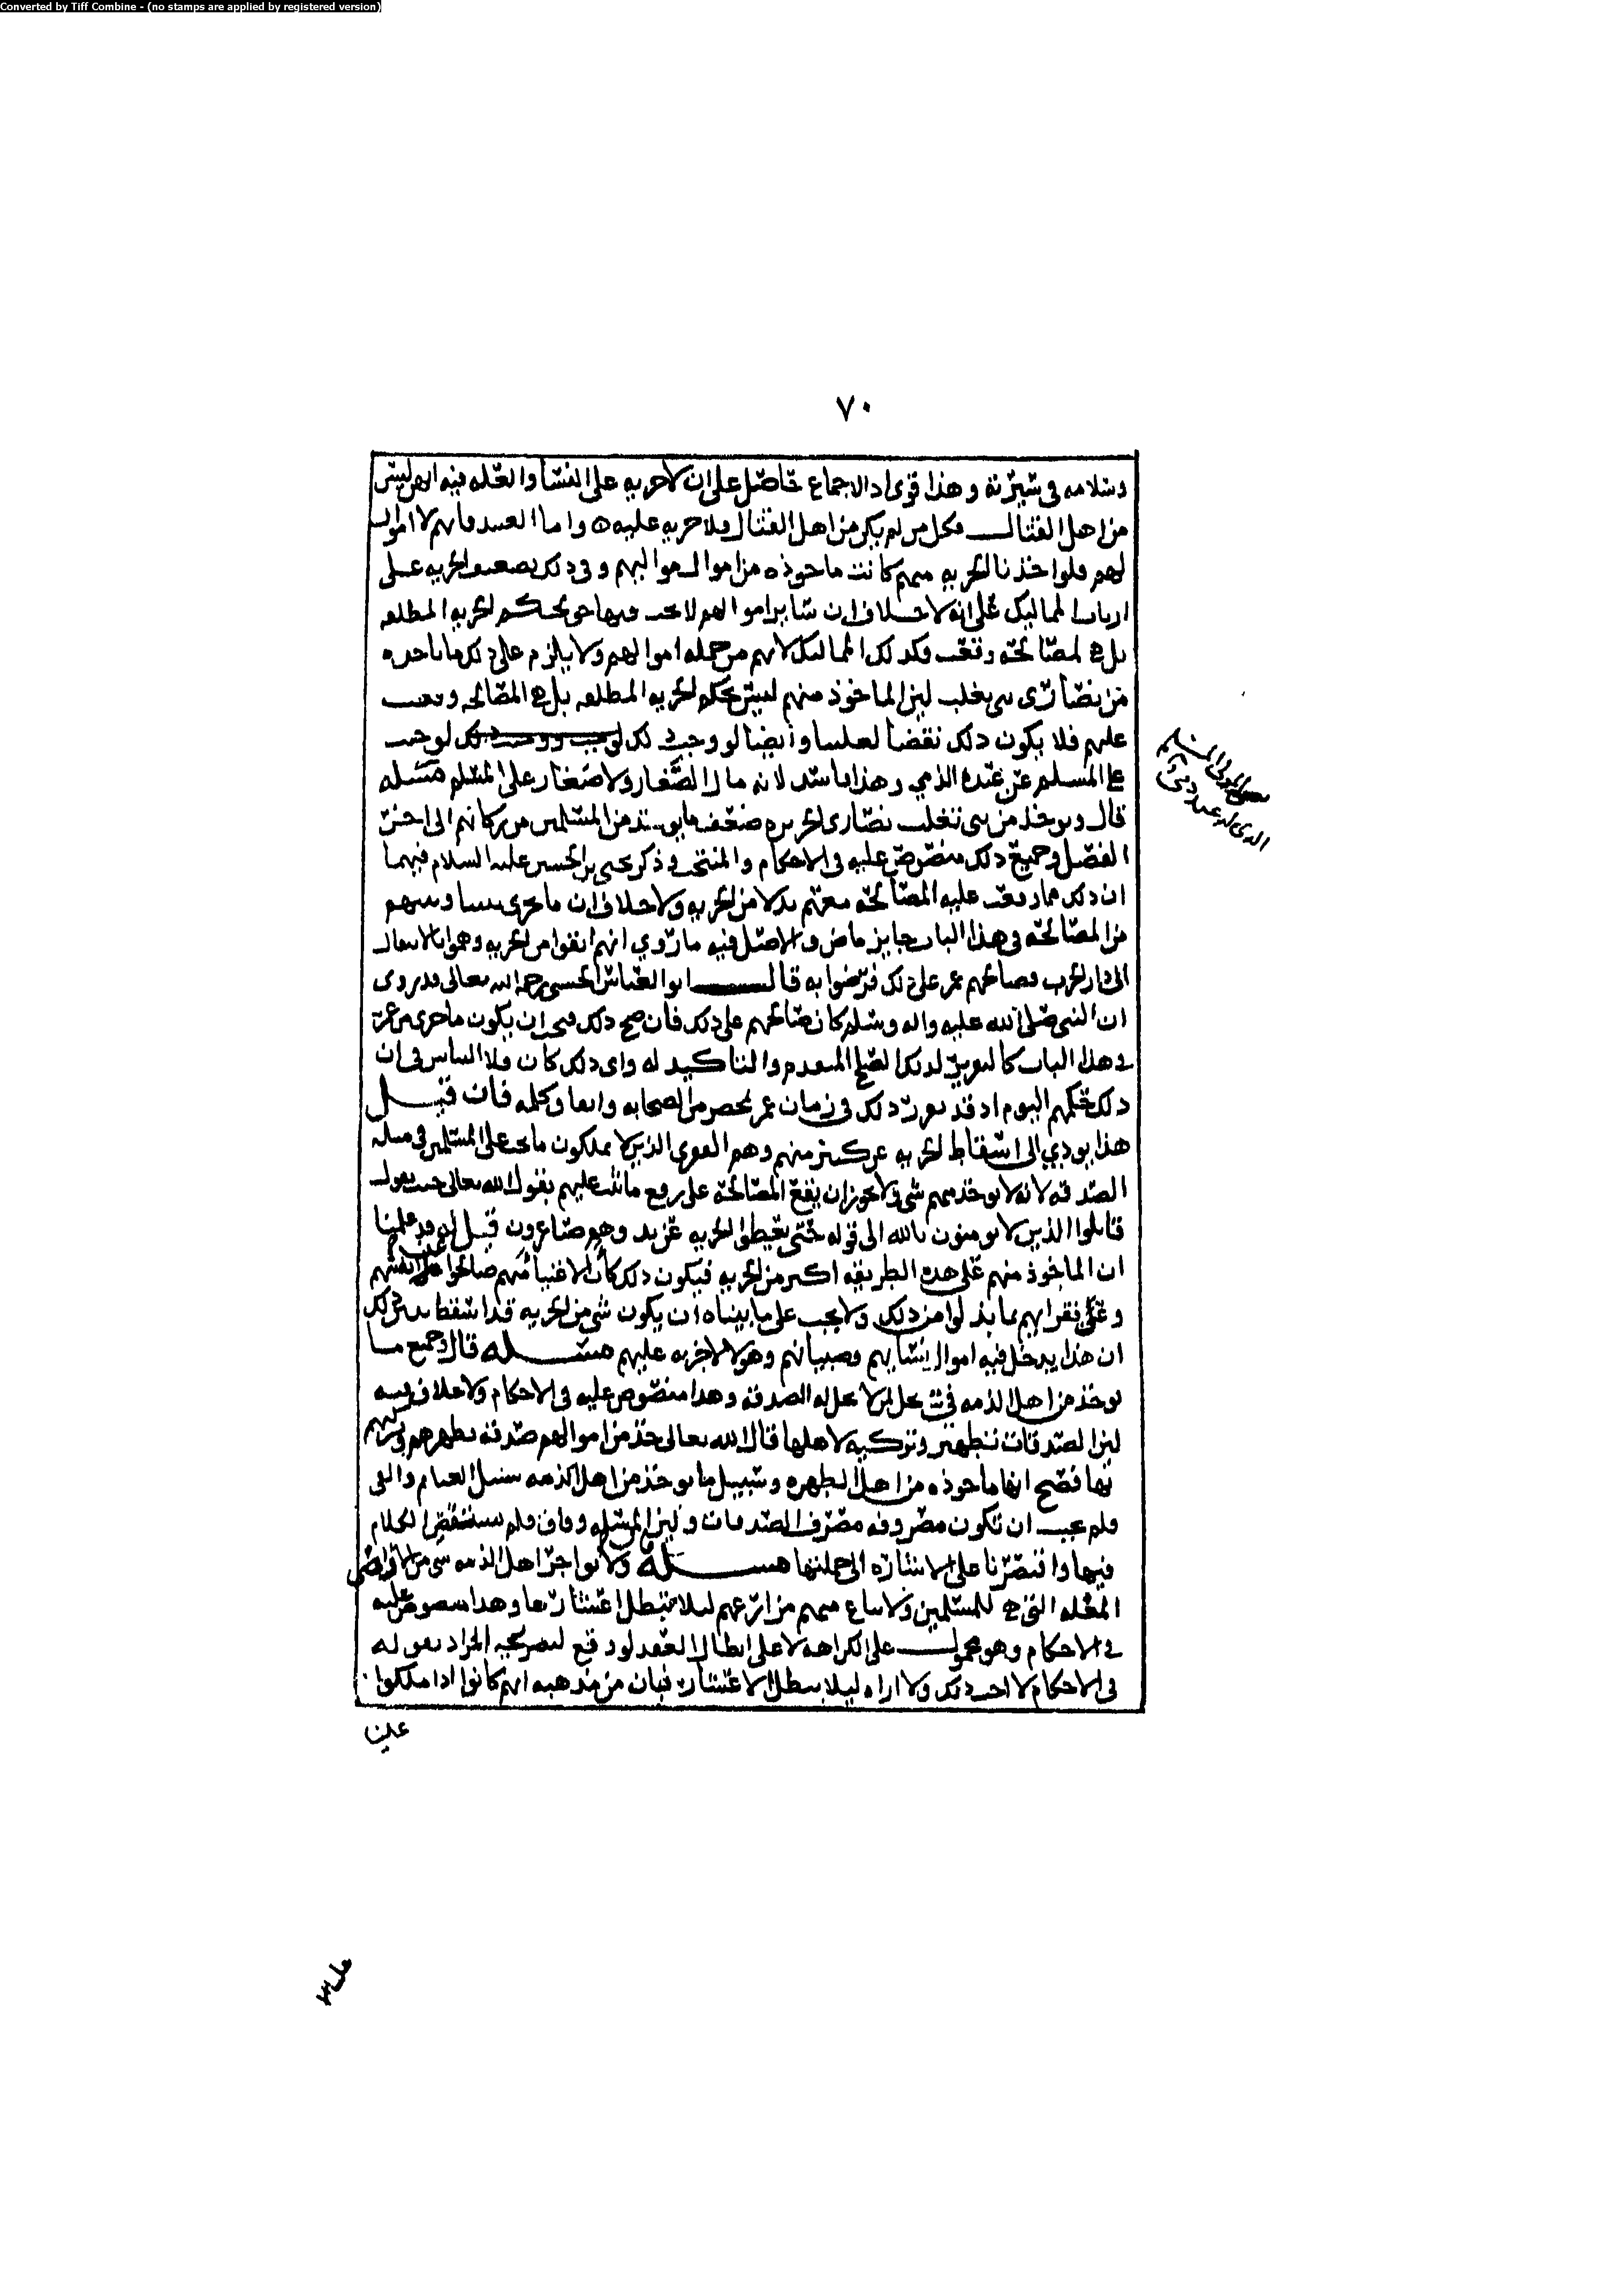 Converted by Tiff Combine - (no stamps are applied by registered version)
٧٠
وسلامه في سيرته وهذا قوي اذ الاجماع حاصل على ان لا جزيه على النسا والعله فيه انهن ليس
من اهل القتال فكل من لم يكن من اهل القتال فلا جزيه عليه ٥ واما العبيد فانهم لا اموال
لهم فلو اخذنا الجزيه منهم كانت ماخوذه من اموال مواليهم وفي ذلك تضعيف الجزيه على
ارباب المماليك على انه لا خلاف ان ساير اموالهم لا يجب فيها حق بحكم الجزيه المطلقه
بل هي لمصالحه وقعت وكذلك المماليك لانهم من جمله اموالهم ولا يلزم على ذلك ما ناخذه
من نصارى بني تغلب لان الماخوذ منهم ليس بحكم الجزيه المطلقه بل هي المصالحه وقعت
عليهم فلا يكون ذلك نقضا لعلتنا وايضا لو وجب ذلك لوجب
على المسلم عن عبده الذمي وهذا فاسد لانه مار الصغار ولا صغار على المسلم مسئله
قال ويوخذ من بني تغلب نصارى الجزيره ضعف ما يوخذ من المسلمين من زكاتهم الى اخر
الفصل وجميع ذلك منصوص عليه في الاحكام والمنتخب وذكر يحيى بن الحسين عليه السلام فيهما
ان ذلك مما وقعت عليه المصالحه معهم بدلا من الجزيه ولا خلاف ان ما جرى بيننا وبينهم
من المصالحه في هذا الباب جايز ماض والاصل فيه ما روي انهم انفوا من الجزيه وهموا بالانتقال
الى دار الحرب فصالحهم عمر على ذلك فرضوا به قال ابو العباس الحسني رحمه الله تعالى وقد روى
ان النبي صلى الله عليه واله وسلم كان صالحهم على ذلك فان صح ذلك فيجب ان يكون ما جرى من عمر
في هذا الباب كالتقرير لذلك الصلح المتقدم والتاكيد له واي ذلك كان فلا التباس في ان
ذلك حكمهم اليوم اذ قد تقرر ذلك في زمان عمر بمحضر من الصحابه واتفاق كلمه فان قيل
هذا يودي الى اسقاط الجزيه عن كثير منهم وهم الفقرا الذين لا يملكون ما يجب على المسلمين في مثله
الصدقه لانه لا يوخذ منهم شي ولا يجوز ان يقع المصالحه على رفع ما ثبت عليهم بقول الله تعالى حيث يقول
قاتلوا الذين لا يومنون بالله الى قوله حتى يعطوا الجزيه عن يد وهم صاغرون قيل له قد علمنا
ان الماخوذ منهم على هذه الطريقه اكثر من الجزيه فيكون ذلك كأن الاغنيا منهم صالحوا عن انفسهم
وعن فقرايهم بما بذلوا من ذلك ولا يجب على ما بيناه ان يكون شي من الجزيه قد اسقط يبين ذلك
ان هذا يدخل فيه اموال نسايهم وصبيانهم وهولا لا جزيه عليهم مسئله قال وجميع ما
يوخذ من اهل الذمه في يحل لمن لا تحل له الصدقه وهذا منصوص عليه في الاحكام ولا خلاف فيه
لان الصدقات تطهير وتزكيه لاهلها قال الله تعالى خذ من اموالهم صدقه تطهرهم وتزكيهم
بها فصح انها ماخوذه من اهل الطهره وسبيل ما يوخذ من اهل الذمه سبيل الغنايم والفي
فلم يجب ان تكون مصروفه مصرف الصدقات ولان المسئله وفاق فلم نستقص الكلام
فيها واقتصرنا على الاشاره الى جملتها مسئله ولا يواجر اهل الذمه شي من الاراضي
المغله التي هي للمسلمين ولا تباع منهم مزارعهم ليلا تبطل اعشارها وهذا منصوص عليه
في الاحكام وهو محمول على الكراهه لا على ابطال العقد لو وقع لتصريحه المراد بقوله
في الاحكام لا احب ذلك ولا اراه ليلا يبطل الاعشار فبان من مذهبه انهم كانوا اذا ملكوا
علينا